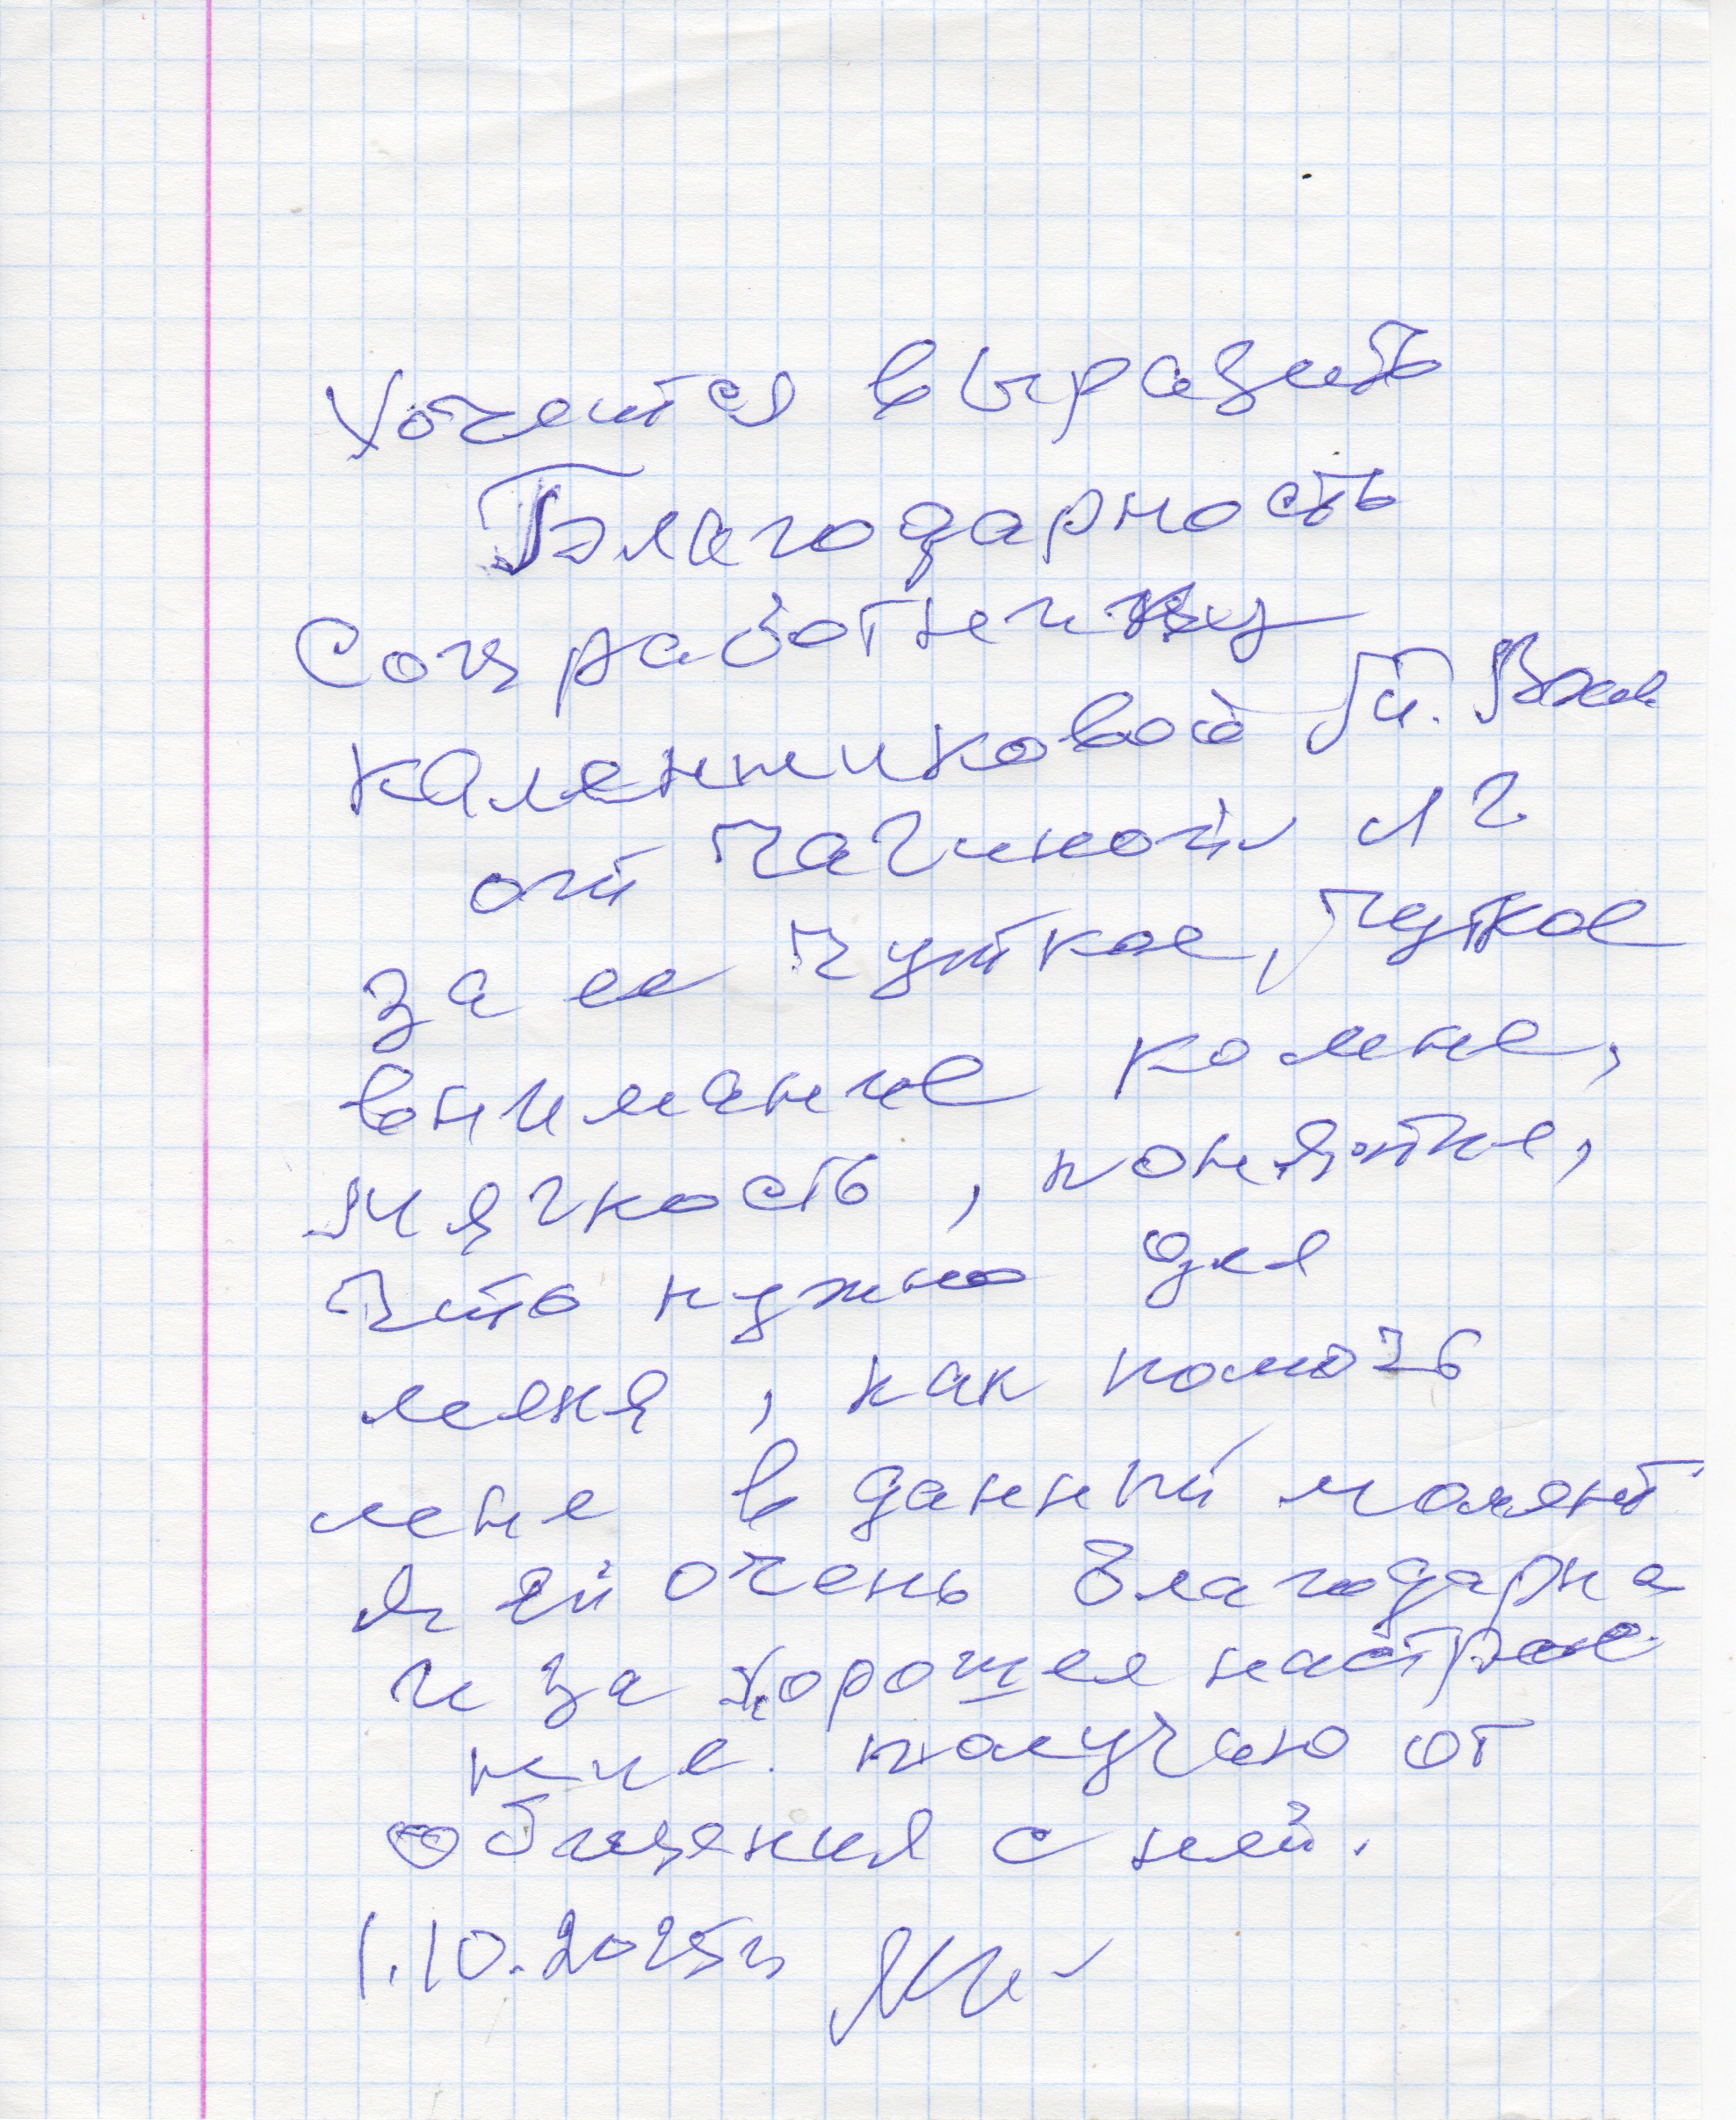 Хочется выразить
Благодарность
Соцработнику
Каленниковой
от Л Г
за ее чуткое, чуткое
внимание ко мне,
мягкость, понятие,
что нужно для
меня, как помочь
мне в данный момент
Я ей очень благодарна
и за хорошее настрое
ние. получаю от
общения с ней.
1.10.2025г